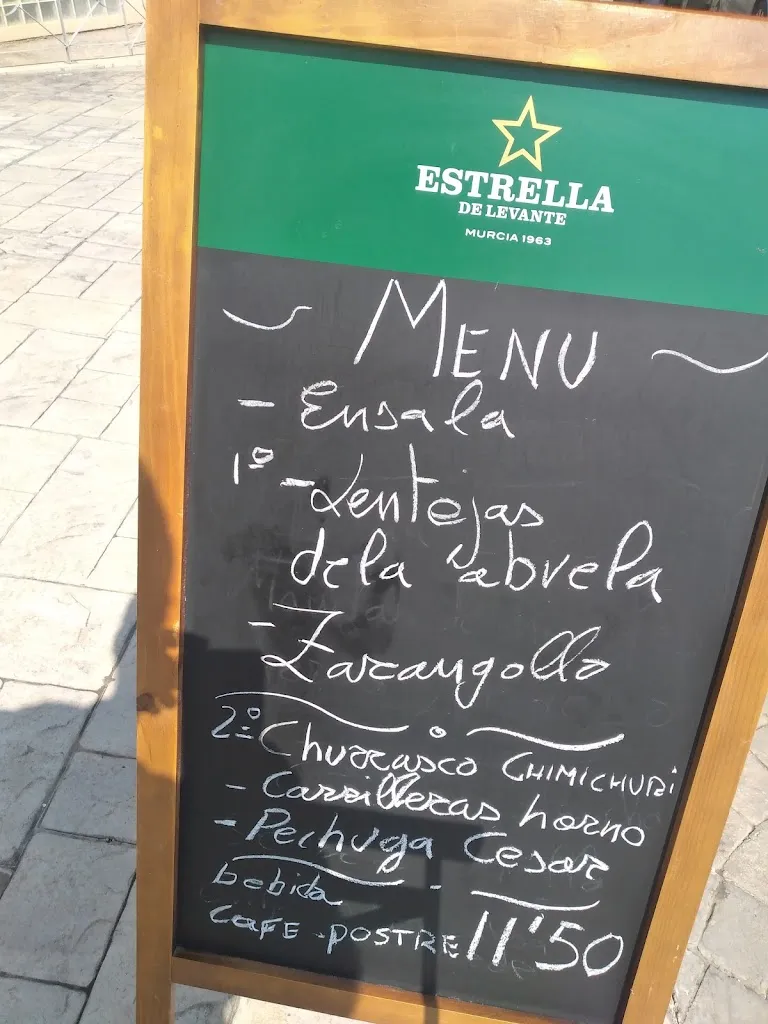 ESTRELLA
DE LEVANTE
MURCIA 1963
MENU
- Ensala
1º - Lentejas
dela abuela
- Zarangollo
2º Churrasco CHIMICHURi
- Carrilleras horno
- Pechuga Cesar
bebida -
CAFE - POSTRE 11'50